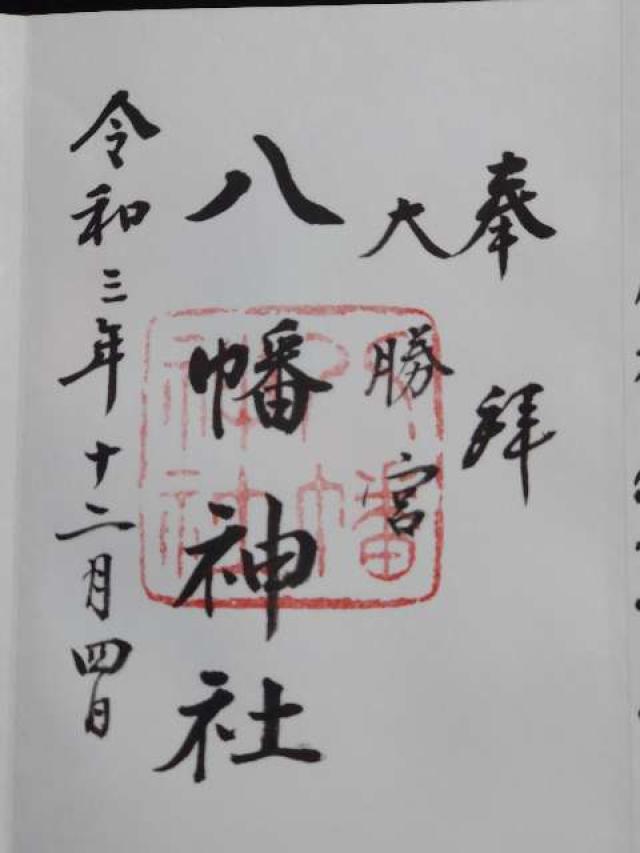 奉拝
大勝宮
八幡神社
令和三年十二月四日
八幡
神社